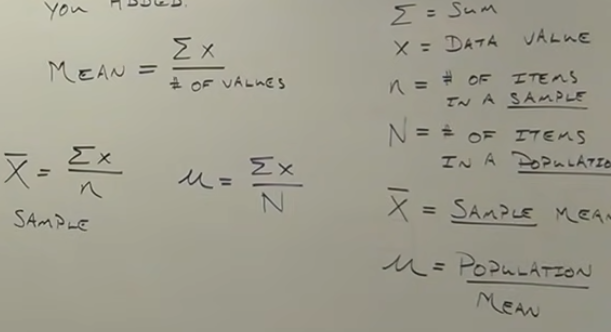 YOU ADDED.
MEAN = Σx / # OF VALUES
X̄ = Σx / n
SAMPLE
μ = Σx / N
Σ = SUM
X = DATA VALUE
n = # OF ITEMS
IN A SAMPLE
N = # OF ITEMS
IN A POPULATIO
X̄ = SAMPLE MEA
μ = POPULATION
MEAN